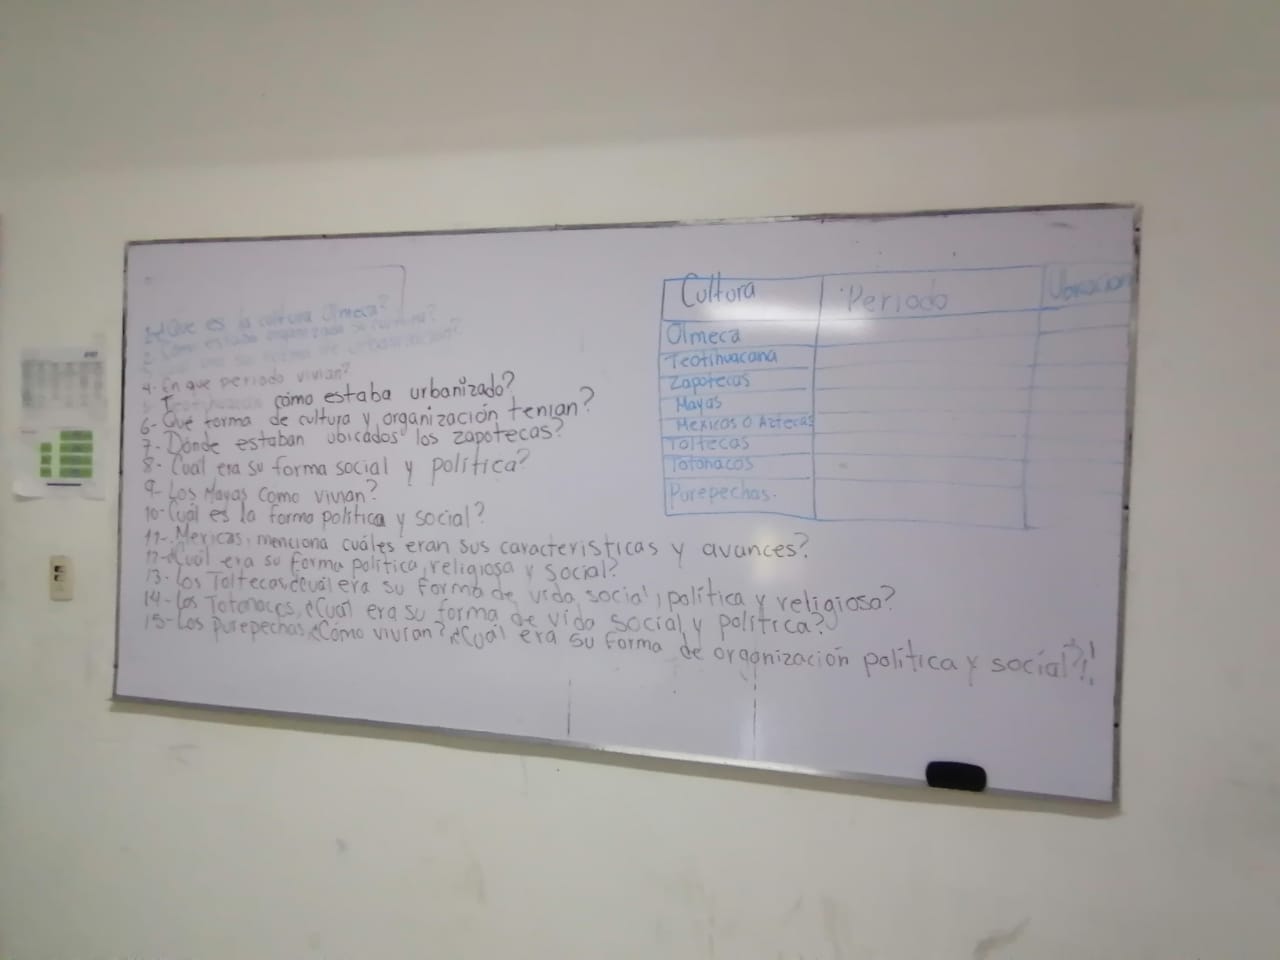 1-¿Que es la cultura Olmeca?
2- Cómo estaba organizada su cultura?
3- su forma de urbanización?
4- En que periodo vivian?
5- Teotihuacan cómo estaba urbanizado?
6- Qué forma de cultura y organización tenían?
7- Dónde estaban ubicados los zapotecas?
8- Cuál era su forma social y política?
9- Los Mayas Como vivían?
10- Cuál es la forma política y social?
11- Mexicas, menciona cuáles eran sus características y avances?
12-¿Cuál era su forma política, religiosa y social?
13- Los Toltecas,¿Cuál era su forma de vida social, política y religiosa?
14- Los Totonacos, ¿Cuál era su forma de vida social y política?
15- Los Purepechas,¿Cómo vivían? ¿Cuál era su forma de organización política y social?!
Cultura Periodo Ubicacion
Olmeca
Teotihuacana
Zapotecas
Mayas
Mexicas o Aztecas
Toltecas
Totonacos
Purepechas.